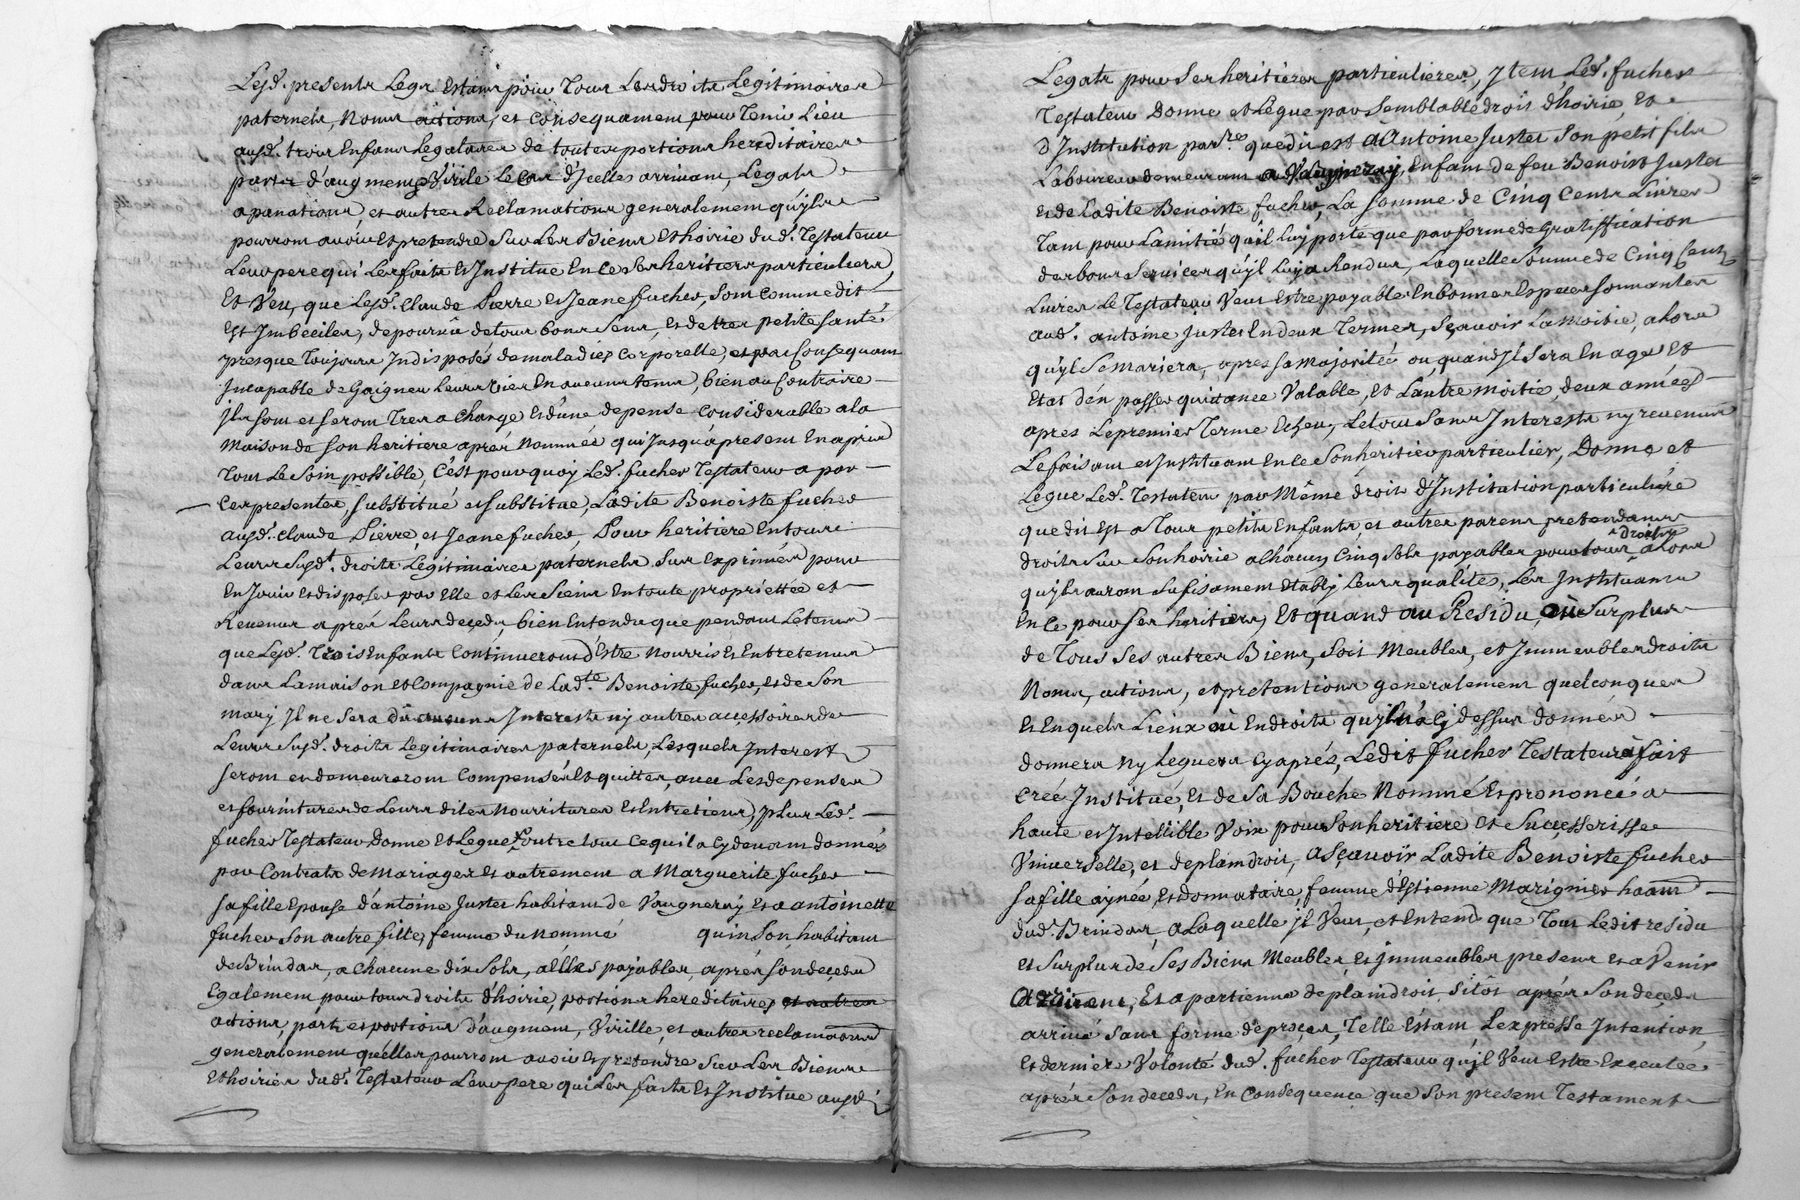 Lesd. presents Legs Estans pour Tous Les droits Legitimaires
paternels, Noms actions, et consequament pour Tenir Lieu
ausd. trois Enfans Legataires de toutes portions hereditaires
parts d'augment, Virile Le cas d'Jcelles arrivant, Legats
apanations et autres Reclamations generalement qu'yls
pourront avoir et pretendre Sur Les Biens Et hoirie dud. Testateur
Leur pere qui Les faits Et Jnstitue En ce Ses heritiers particuliers,
Et Veu, que Lesd. Claude Pierre et Jeane fucher, Sont comme dit
Est Jmbeciles, depourvû de tous bons Sens, et de tres petite Santé
presque Toujours Jndisposés de maladies Corporelle, et par Consequant
Jncapable de Gaigner Leurs vies En aucuns tems, bien au Contraire
Jls sont et seront Tres a Charge et d'une depense Considerable a la
Maison de Son heritiere apres Nommée qui Jusqu'a present En a pris
Tout Le Soin possible, C'est pourquoy Led. fucher Testateur a par
Ces presentes Substitué et Substitue, Ladite Benoiste fucher
ausd. Claude Pierre, et Jeane fucher, Pour heritiere En tous
Leurs Susd.t droits Legitimaires paternels Sus Exprimés pour
En Jouir et disposer par Elle et Les Siens En toute propriettée et
Revenus aprés Leurs deçeds, bien Entendu que pendant Le tems
que Lesd. Trois Enfants Continueront d'Estre Nourris Et Entretenus
dans La maison et Compagnie de Lad.te Benoiste fucher, et de Son
mary Jl ne Sera dû aucuns Jnterests ny autres accessoires de
Leurs Susd. droits Legitimaires paternels, Lesquels Jnterest
seront et demeureront Compensés Et quittes, avec Les depenses
et fournitures de Leurs dites Nourritures Et Entretiens, Plus Led.
fucher Testateur Donne et Legue outre tout Ce qu'il a Cy devant donnés
par Contrats de Mariages Et autrement a Marguerite fucher
Sa fille Epouse d'antoine Juster habitant de Vaugneray Et a antoinette
fucher Son autre fille, femme du Nommé quinson habitant
de Brindas, a Chacune dix Sols, a Elles payables, aprés Son deçeds
Egalement pour tous droits d'hoirie, portions hereditaires et autres
actions, parts et portions d'augment, Virille, et autres reclamations
generalement qu'elles pourront avoir Et pretendre Sur Les Biens
Et hoiries dud. Testateur Leur pere qui Les faits Et Jnstitue ausd
Legats pour Ses heritieres particulieres, Jtem Led. fucher
Testateur Donne et Légue par Semblable droit d'hoirie Et
d'Jnstitution par.res que dit est a Antoine Juster Son petit fils
Laboureur demeurant a Vaugneray, Enfant de feu Benoist Juster
Et de Ladite Benoiste fucher, La Somme de Cinq Cents Livres
Tant pour L'amitié qu'il Luy porte que par forme de Gratiffication
des bons Services qu'yl Luy a Rendus, Laquelle Somme de Cinq Cents
Livres Le Testateur Veut Estre payables En bonnes Especes Sonnantes
aud. antoine Juster En deux Termes, Sçavoir La Moitié, alors
qu'yl Se mariera, apres Sa Majoritée ou quand Jl Sera En age Et
Etat d'en passer quittance Valable, Et L'autre Moitié, deux années
apres Le premier Terme Echeu, Le tout Sans Jnterests ny revenus
Le faisant et Jnstituant En ce Son heritier particulier, Donne et
Légue Led. Testateur par Même droit d'Jnstitution particuliére
que dit Est a Tous petits Enfants, et autres parens pretendants
droits Sur Son hoirie a Chacun Cinq Sols payables pour tous droits alors
qu'yls auront Sufisament Etably Leurs qualités, Les Jnstituants
En ce pour Ses heritiers, Et quand au Residu, ou Surplus
de Tous Ses autres Biens, Soit Meubles, et Jmmeubles droits
Noms, actions, et pretentions generalement quelconques
Et En quels Lieux ou Endroits qu'yls Cy dessus donnés
donnera Ny Leguera Cy aprés, Ledit fucher Testateur à fait
créé Jnstitué, Et de Sa Bouche Nommé Et prononcé a
haute et Jntellible Voix pour Son heritiere Et Successerisse
Vniverselle, et de plain droit, a Sçavoir Ladite Benoiste fucher
Sa fille aynée, Et donnataire, femme d'Estienne Marignier habitant
dud. Brindas, a Laquelle Jl Veut, et Entend que Tout Le dit residu
Et Surplus de Ses Biens Meubles Et Jmmeubles present Et a Venir
arrivent, Et apartienne de plain droit, Sitôt aprés Son deçeds
arrivé Sans forme de proces, Telle Estant L'expresse Jntention
Et derniere Volonté dud. fucher Testateur qu'yl Veut Estre Executée
aprés Son deceds, En Consequence que Son present Testament